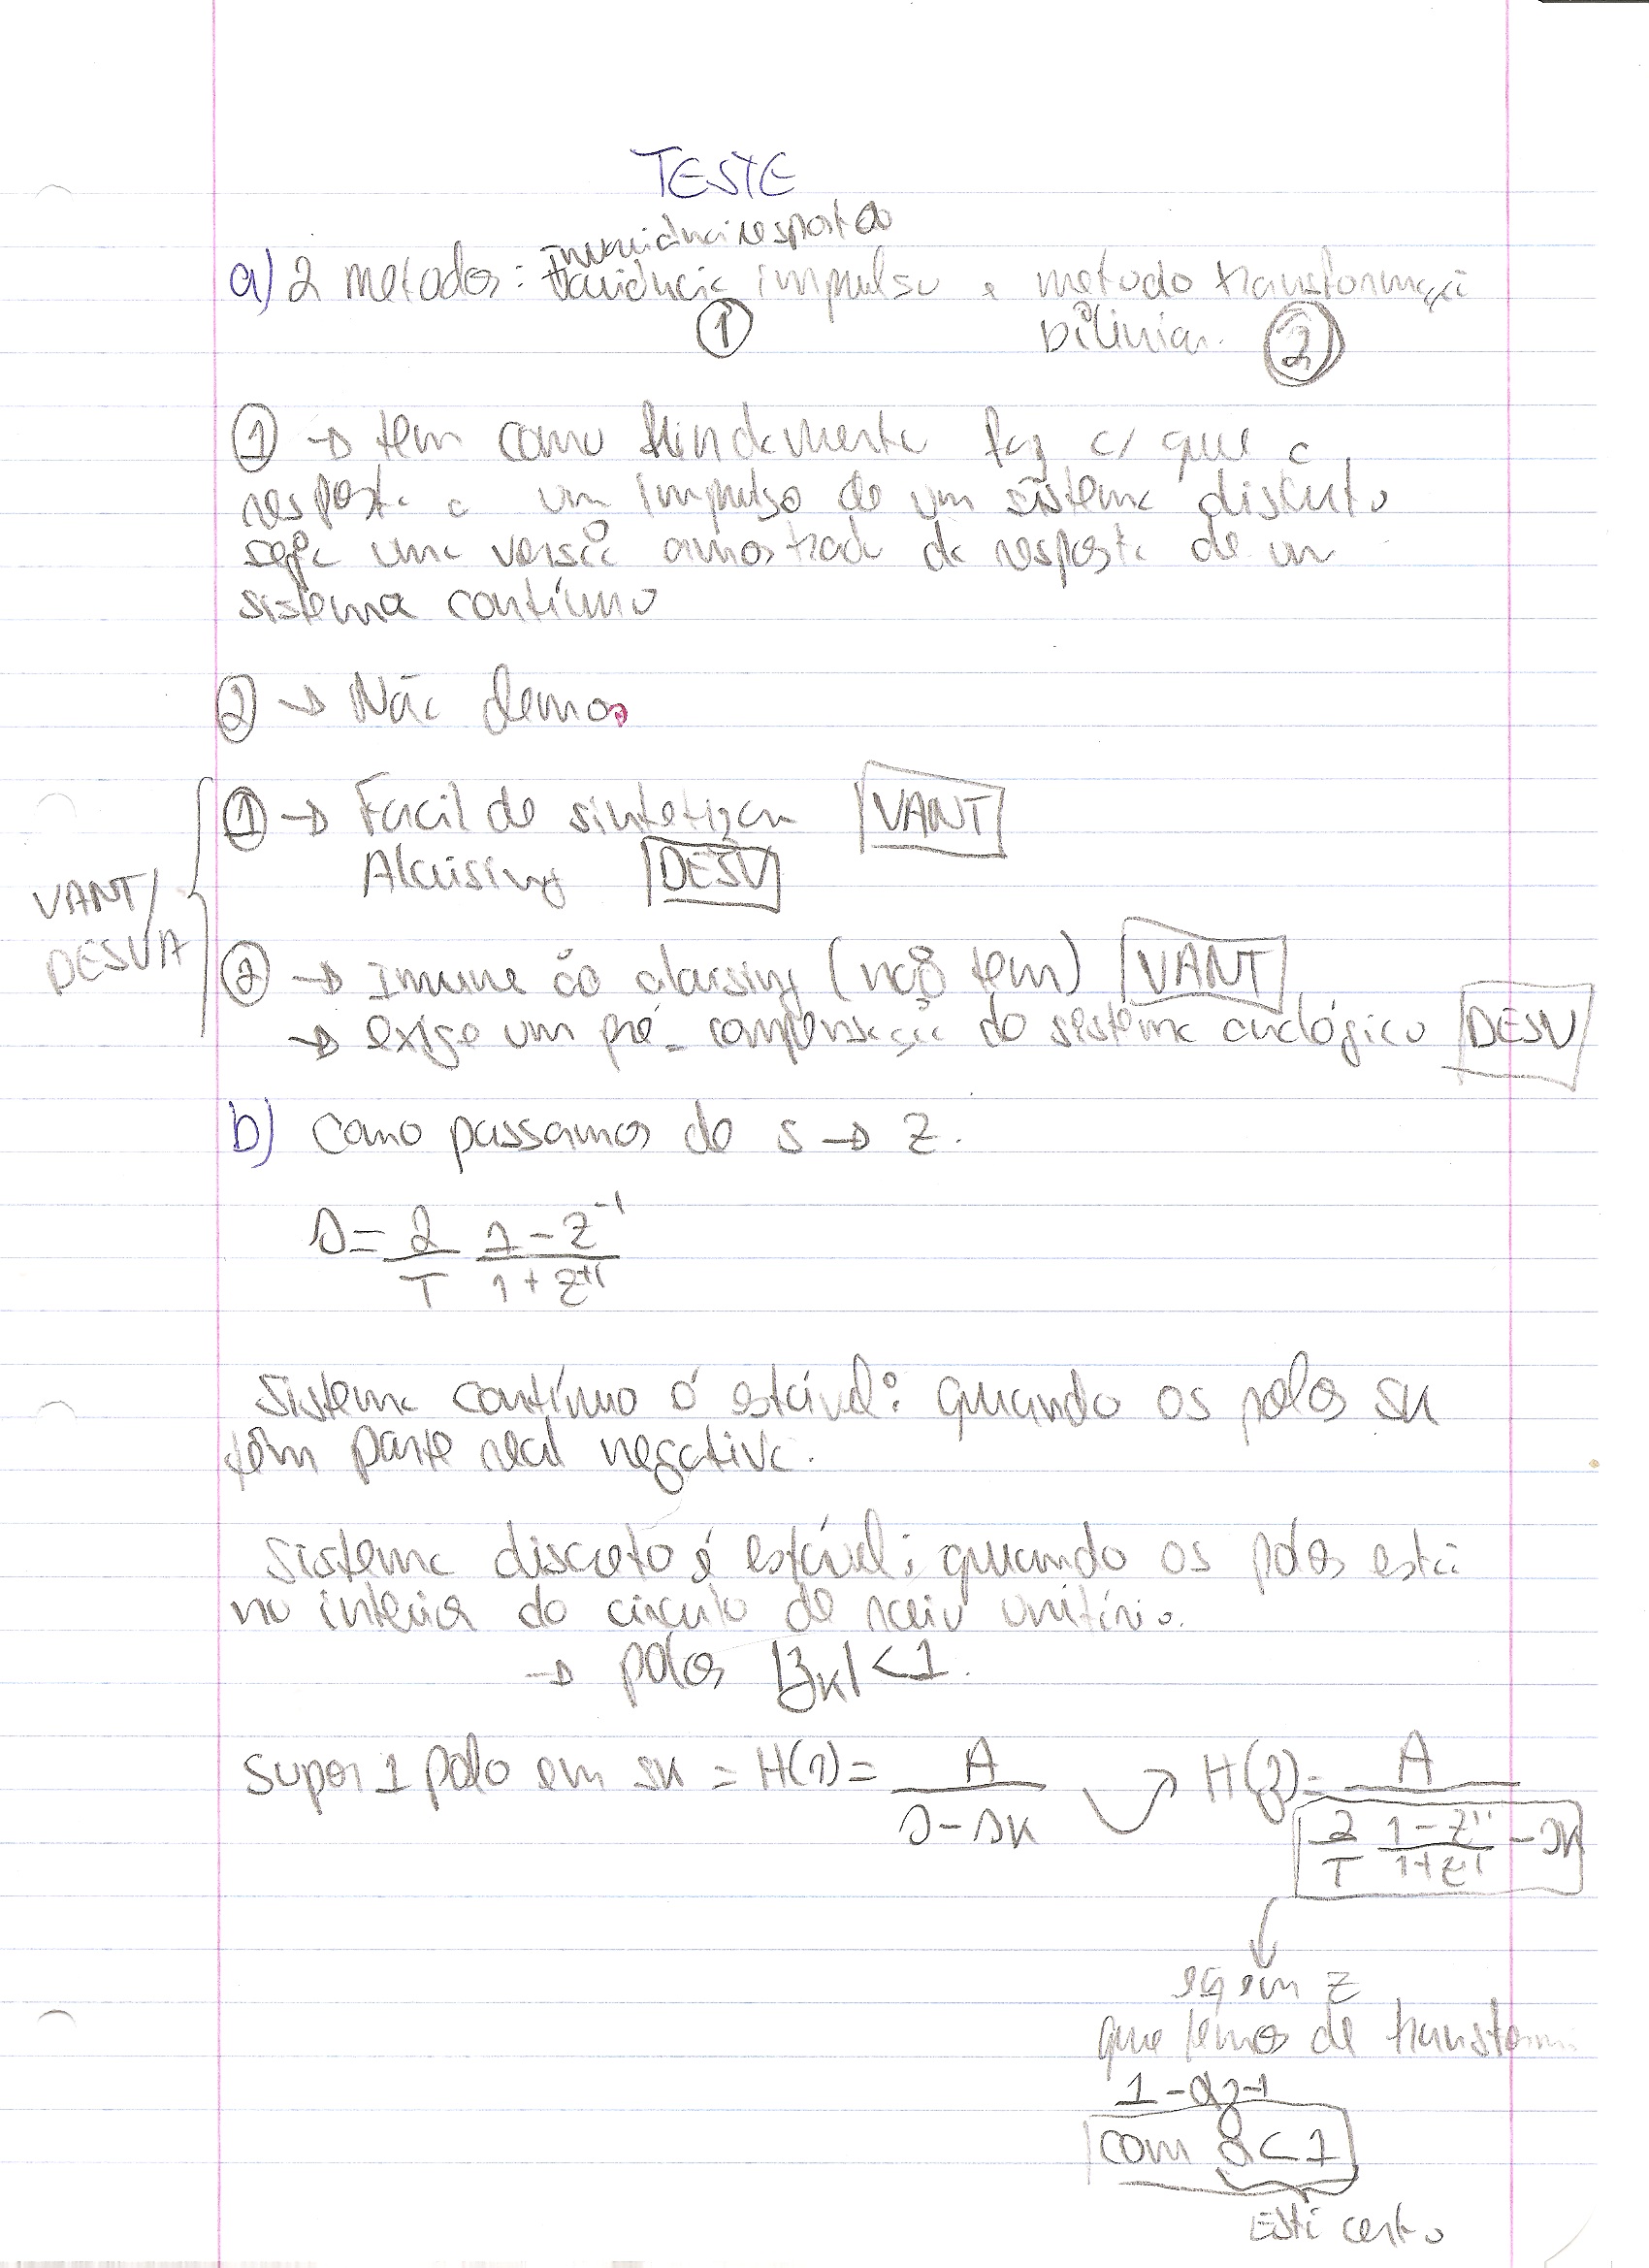 TESTE
a) 2 metodos: Invariância resposta impulso e método transformação
bilinear.
① ②
① → tem como fundamento faz c/ que a
resposta a um impulso de um sistema discreto
seja uma versão amostrada da resposta de um
sistema contínuo
② → Não demos
VANT/
DESVA
① → Fácil de sintetizar VANT
Alaising DESV
② → Imune ao alaising (não tem) VANT
→ exige um pré-compensação do sistema analógico DESV
b) Como passamos de s → z.
s = 2/T (1 - z^-1)/(1 + z^-1)
Sistema contínuo é estável: quando os polos sk
têm parte real negativa.
Sistema discreto é estável: quando os pólos está
no interior do circulo de raio unitário.
→ pólos |zk| < 1.
Supor 1 polo em sk = H(s) = A/(s - sk) H(z) = A/(2/T (1 - z^-1)/(1 + z^-1) - sk)
eq em z
que temos de transformar
1 - az^-1
com a < 1
Está certo